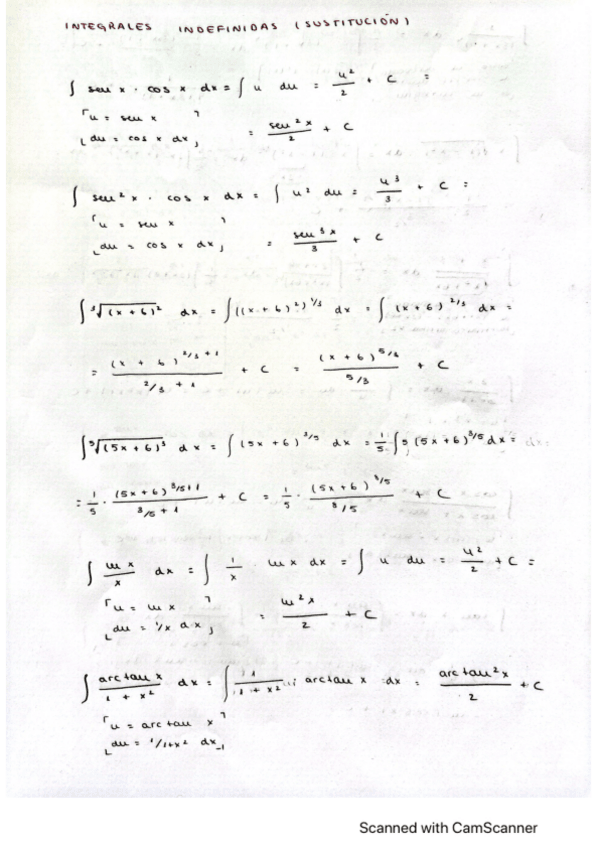 INTEGRALES INDEFINIDAS (SUSTITUCIÓN)
∫ sen x · cos x dx = ∫ u du = u²/2 + C =
⌈u = sen x⌉
⌊du = cos x dx⌋ = sen²x/2 + C
∫ sen²x · cos x dx = ∫ u² du = u³/3 + C =
⌈u = sen x⌉
⌊du = cos x dx⌋ = sen³x/3 + C
∫ ³√(x+6)² dx = ∫((x+6)²)^1/3 dx = ∫ (x+6)^2/3 dx =
= (x+6)^2/3+1 / 2/3+1 + C = (x+6)^5/3 / 5/3 + C
∫ ⁵√(5x+6)³ dx = ∫ (5x+6)^3/5 dx = 1/5 · ∫ 5 (5x+6)^3/5 dx =
= 1/5 · (5x+6)^3/5+1 / 3/5+1 + C = 1/5 · (5x+6)^8/5 / 8/5 + C
∫ ln x / x dx = ∫ 1/x · ln x dx = ∫ u du = u²/2 + C =
⌈u = ln x⌉
⌊du = 1/x dx⌋ = ln²x/2 + C
∫ arctan x / 1+x² dx = ∫ 1/1+x² · arctan x dx = arctan²x/2 + C
⌈u = arctan x⌉
⌊du = 1/1+x² dx⌋
Scanned with CamScanner